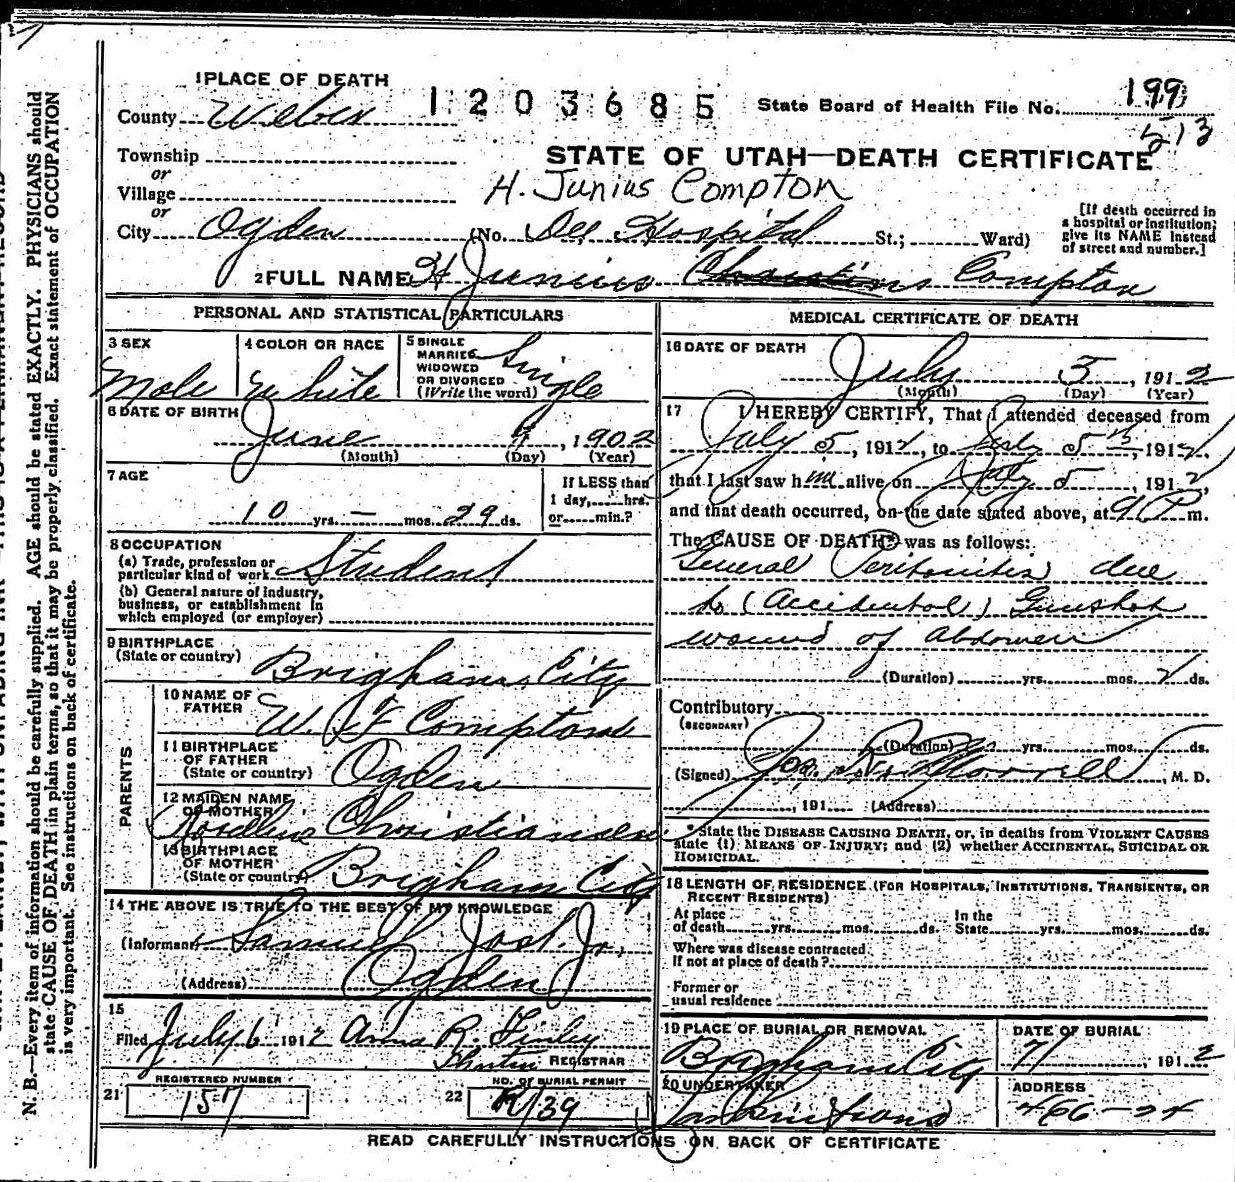 1 PLACE OF DEATH
1203685
State Board of Health File No. 199
513
County Weber
Township
or
Village
or
STATE OF UTAH—DEATH CERTIFICATE
H. Junius Compton
City Ogden (No. Dee Hospital St.; Ward)
[If death occurred in
a hospital or institution;
give its NAME instead
of street and number.]
2 FULL NAME H Junius Compton
PERSONAL AND STATISTICAL PARTICULARS
3 SEX
Male
4 COLOR OR RACE
White
5 SINGLE
MARRIED
WIDOWED
OR DIVORCED
(Write the word)
Single
6 DATE OF BIRTH
June , 1902
(Month) (Day) (Year)
7 AGE
10 yrs. — mos. 29 ds.
If LESS than
1 day, hrs.
or min.?
8 OCCUPATION
(a) Trade, profession or
particular kind of work Student
(b) General nature of industry,
business, or establishment in
which employed (or employer)
9 BIRTHPLACE
(State or country)
Brigham City
PARENTS
10 NAME OF
FATHER
W. F Compton
11 BIRTHPLACE
OF FATHER
(State or country)
Ogden
12 MAIDEN NAME
OF MOTHER
Christiansen
13 BIRTHPLACE
OF MOTHER
(State or country)
Brigham City
14 THE ABOVE IS TRUE TO THE BEST OF MY KNOWLEDGE
(Informant) Samuel Jost Jr.
(Address) Ogden
15
Filed July 6 1912 Anna R. Finley
REGISTRAR
21
REGISTERED NUMBER
157
22
NO. OF BURIAL PERMIT
MEDICAL CERTIFICATE OF DEATH
16 DATE OF DEATH
July 5, 1912
(Month) (Day) (Year)
17 I HEREBY CERTIFY, That I attended deceased from
July 5, 1912, to July 5th, 1912.
that I last saw him alive on July 5, 1912,
and that death occurred, on the date stated above, at 9 P m.
The CAUSE OF DEATH* was as follows:
General Peritonitis due
to (Accidental) Gunshot
wound of Abdomen
(Duration) yrs. mos. 2 ds.
Contributory
(SECONDARY)
(Duration) yrs. mos. ds.
(Signed) Jos. R. Morrell, M. D.
, 191 (Address)
*State the DISEASE CAUSING DEATH, or, in deaths from VIOLENT CAUSES
state (1) MEANS OF INJURY; and (2) whether ACCIDENTAL, SUICIDAL OR
HOMICIDAL.
18 LENGTH OF RESIDENCE (FOR HOSPITALS, INSTITUTIONS, TRANSIENTS, OR
RECENT RESIDENTS)
At place
of death yrs. mos. ds.
In the
State yrs. mos. ds.
Where was disease contracted
If not at place of death?
Former or
usual residence
19 PLACE OF BURIAL OR REMOVAL
Brigham City
DATE OF BURIAL
7/ , 1912
20 UNDERTAKER
ADDRESS
466-24
READ CAREFULLY INSTRUCTIONS ON BACK OF CERTIFICATE
N. B.—Every item of information should be carefully supplied. AGE should be stated EXACTLY. PHYSICIANS should
state CAUSE OF DEATH in plain terms, so that it may be properly classified. Exact statement of OCCUPATION
is very important. See instructions on back of certificate.